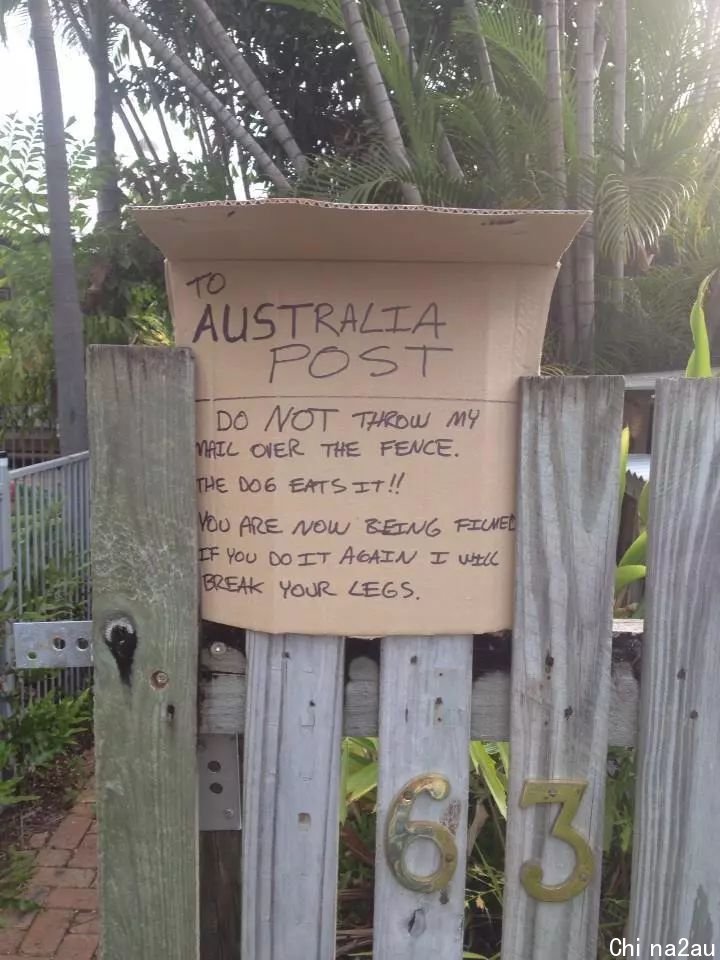 TO
AUSTRALIA
POST
DO NOT THROW MY
MAIL OVER THE FENCE.
THE DOG EATS IT!!
YOU ARE NOW BEING FILMED
IF YOU DO IT AGAIN I WILL
BREAK YOUR LEGS.
63
Chi na2au